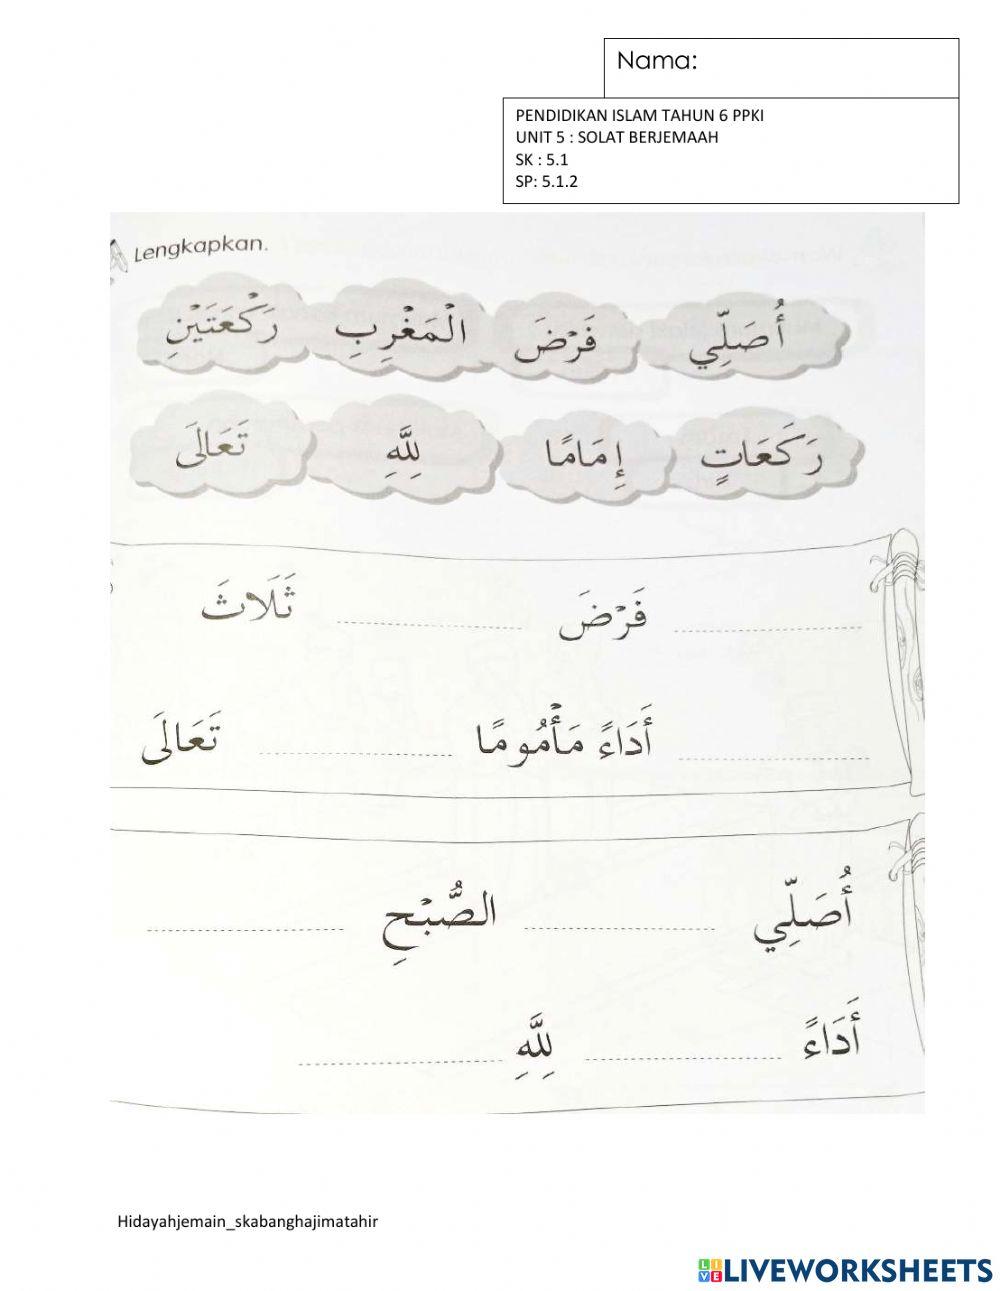 Nama:
PENDIDIKAN ISLAM TAHUN 6 PPKI
UNIT 5 : SOLAT BERJEMAAH
SK : 5.1
SP: 5.1.2
Lengkapkan.
أُصَلِّي فَرْضَ الْمَغْرِبِ رَكْعَتَيْنِ
رَكَعَاتٍ إِمَامًا لِلَّهِ تَعَالَى
فَرْضَ ثَلَاثَ
أَدَاءً مَأْمُومًا تَعَالَى
أُصَلِّي الصُّبْحِ
أَدَاءً لِلَّهِ
Hidayahjemain_skabanghajimatahir
LIVE LIVEWORKSHEETS